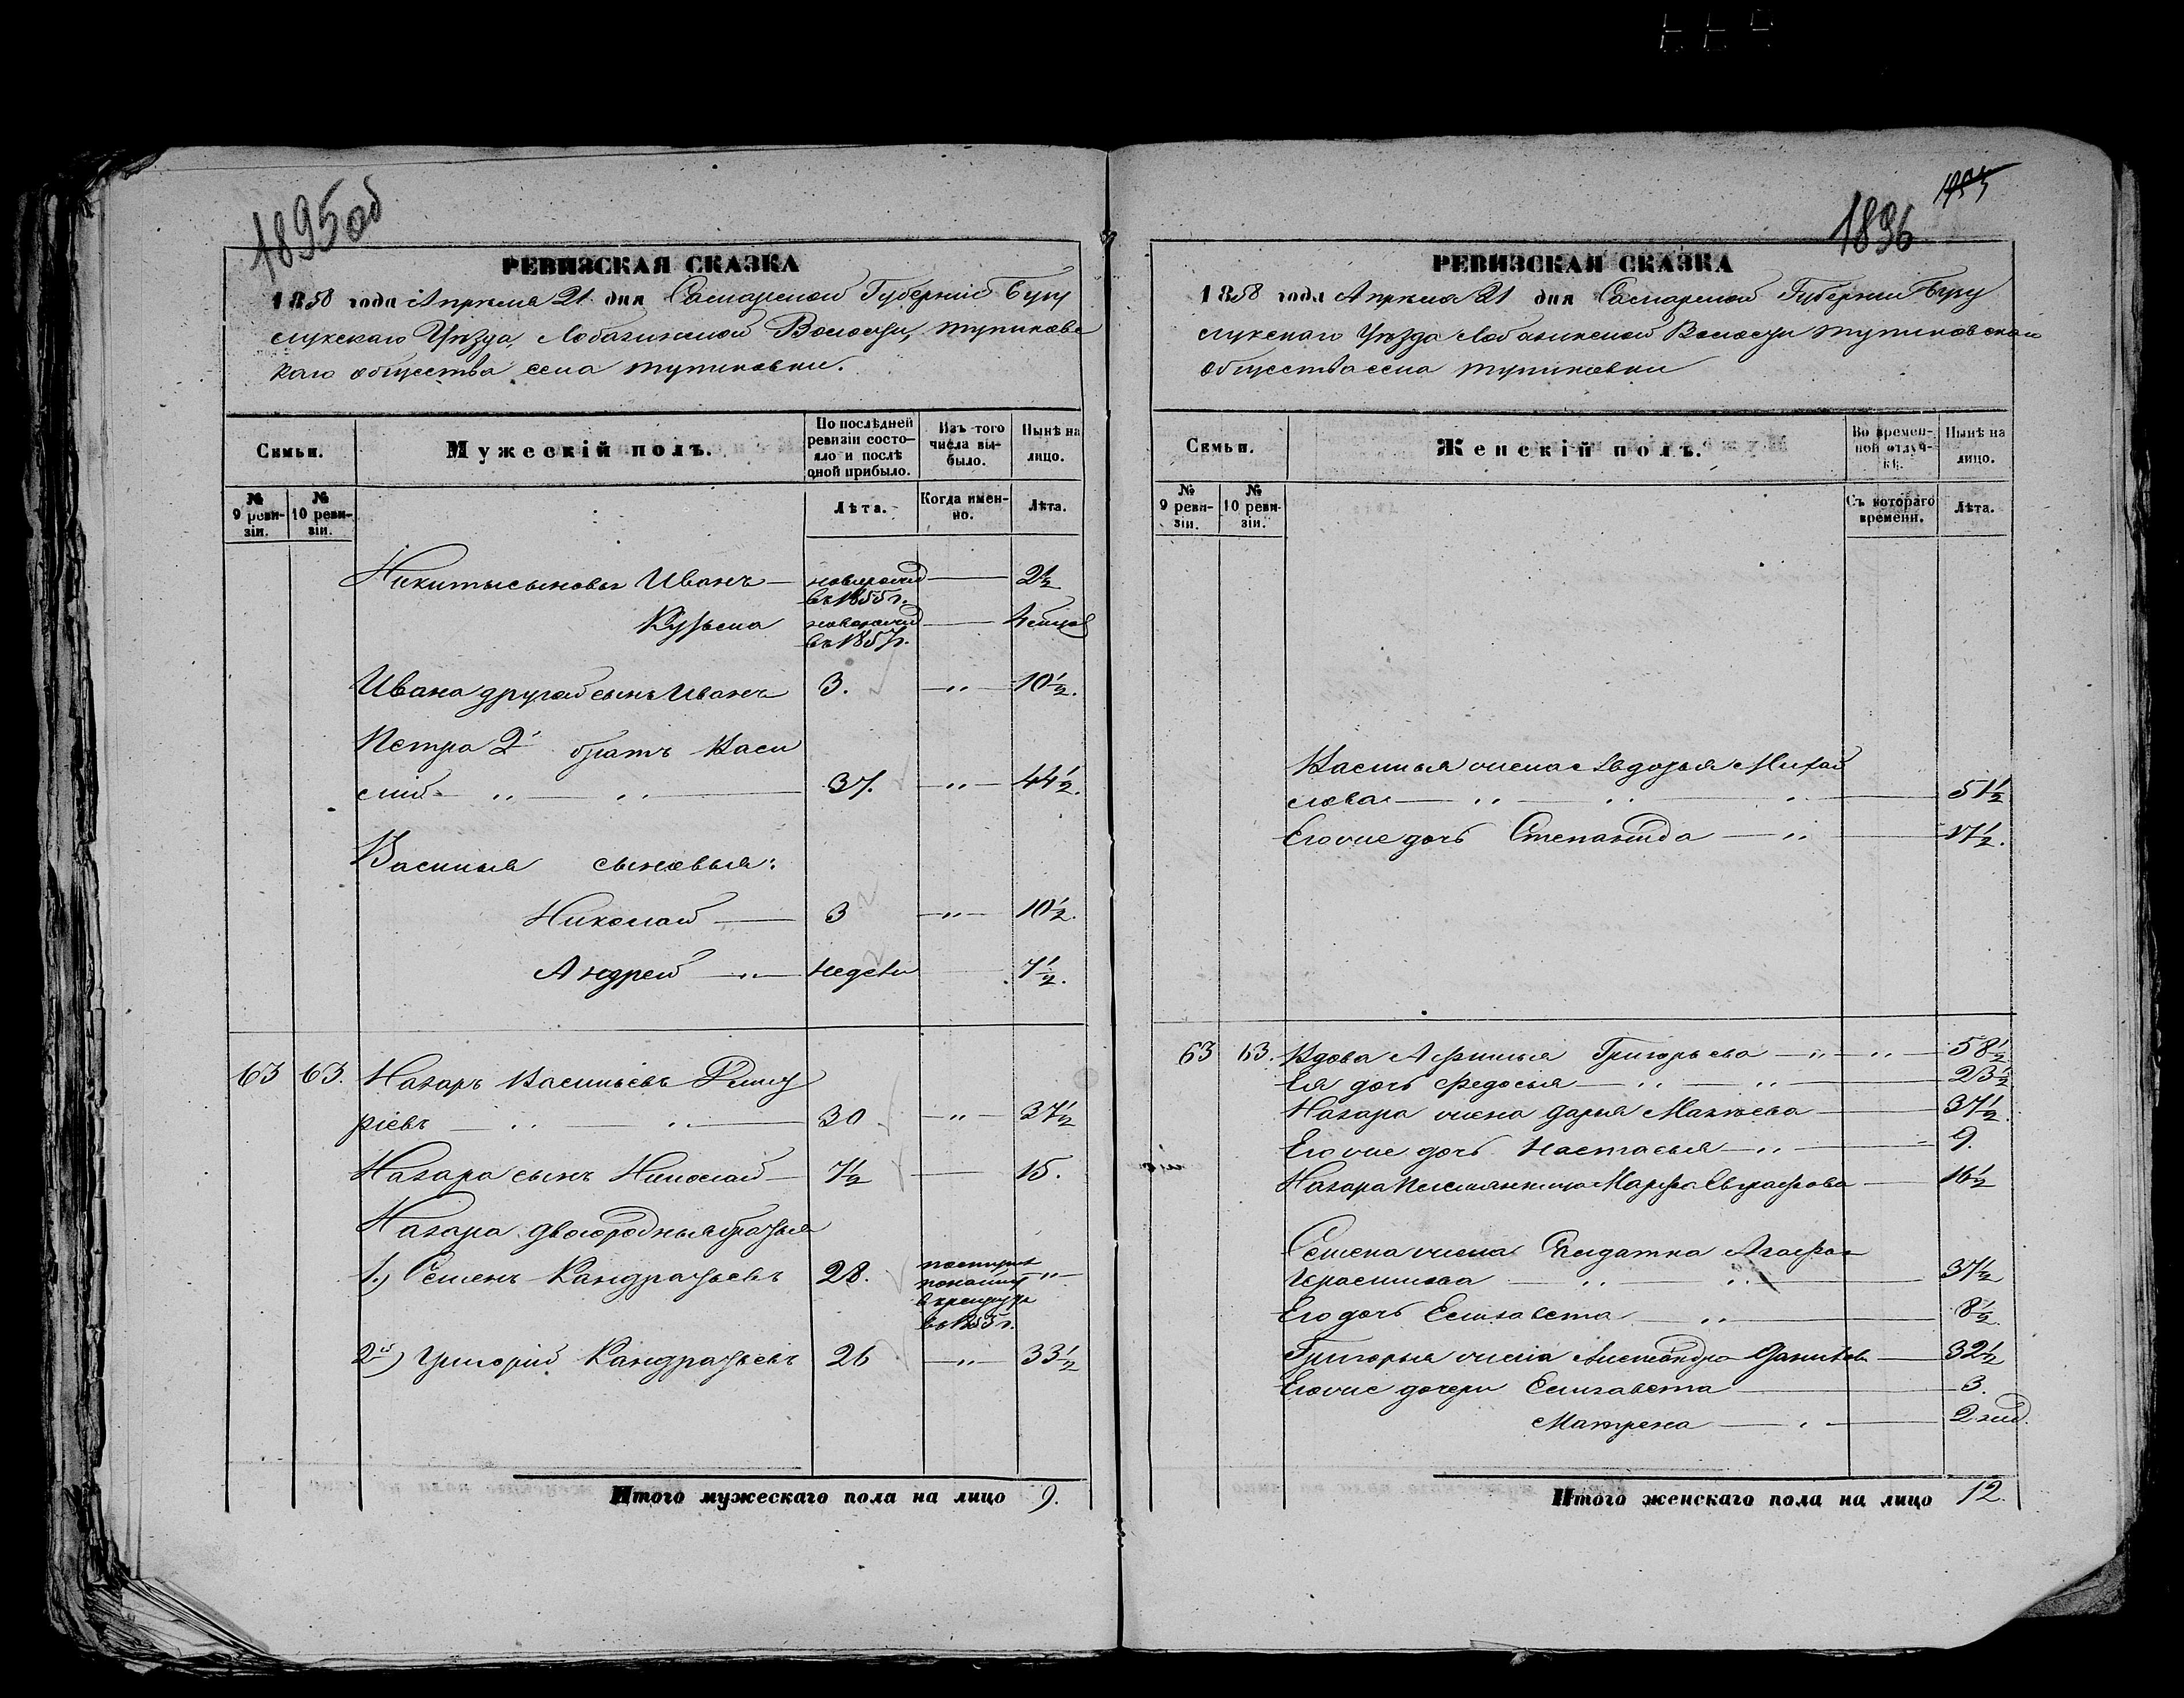 1895об
РЕВИЗСКАЯ СКАЗКА
1858 года Апреля 21 дня Самарской Губерніи Бугу
слукскаго Уезда, Лобазинской Волости, тупиковс
каго общества села тупиковки.
Семьи.
Мужескій полъ.
По последней ревизіи состояло и после оной прибыло.
Изъ того числа выбыло.
Ныне на лицо.
№ 9 ревизіи.
№ 10 ревизіи.
Лета.
Когда именно.
Лета.
Никиты сыновья Иванъ новорожд въ 1855 г. 2½
Кузьма новорожд въ 1857 г.
Ивана другой сынъ Иванъ 3. 10½.
Петра 2й братъ Васи
лій 37. 44½.
Василья сыновья:
Николай 3 10½.
Андрей недели 7½.
63 63. Назаръ Васильевъ
ріевъ 30 37½
Назара сынъ Николай 7½ 15.
Назара двоюродныя братья
1.) Семенъ Кандратьевъ 28. въ рекруты въ 1855 г.
2й) Григорій Кандратьевъ 26 33½
Итого мужескаго пола на лицо 9.
1896
РЕВИЗСКАЯ СКАЗКА
1858 года Апреля 21 дня Самарской Губерніи Бугу
слукскаго Уезда Лобазинской Волости тупиковскаго
общества села тупиковки
Семьи.
Женскій полъ.
Во временной отлучке.
Ныне на лицо.
№ 9 ревизіи.
№ 10 ревизіи.
Съ котораго времени.
Лета.
Василья жена Авдотья Михай
лова 51½
Его же дочь Степанида 17½.
63 63. Вдова Афимья Григорьева 58½
Ея дочь Федосья 23½
Назара жена Дарья Макеева 37½
Его же дочь Настасья 9.
Назара племянница Марфа Евграфова 16½
Семена жена Солдатка Агафья
Герасимова 37½
Его дочь Елизавета 8½
Григорья жена Александра Данилова 32½
Его же дочери Елизавета 3.
Матрена 2 нед.
Итого женскаго пола на лицо 12.